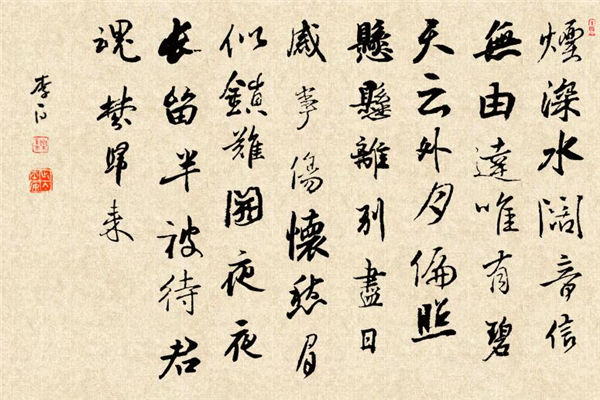 煙深水闊音信
無由達唯有碧
天云外月偏照
懸懸離別盡日
感事傷懷愁眉
似鎖難開夜夜
长留半被待君
魂梦歸来
李白